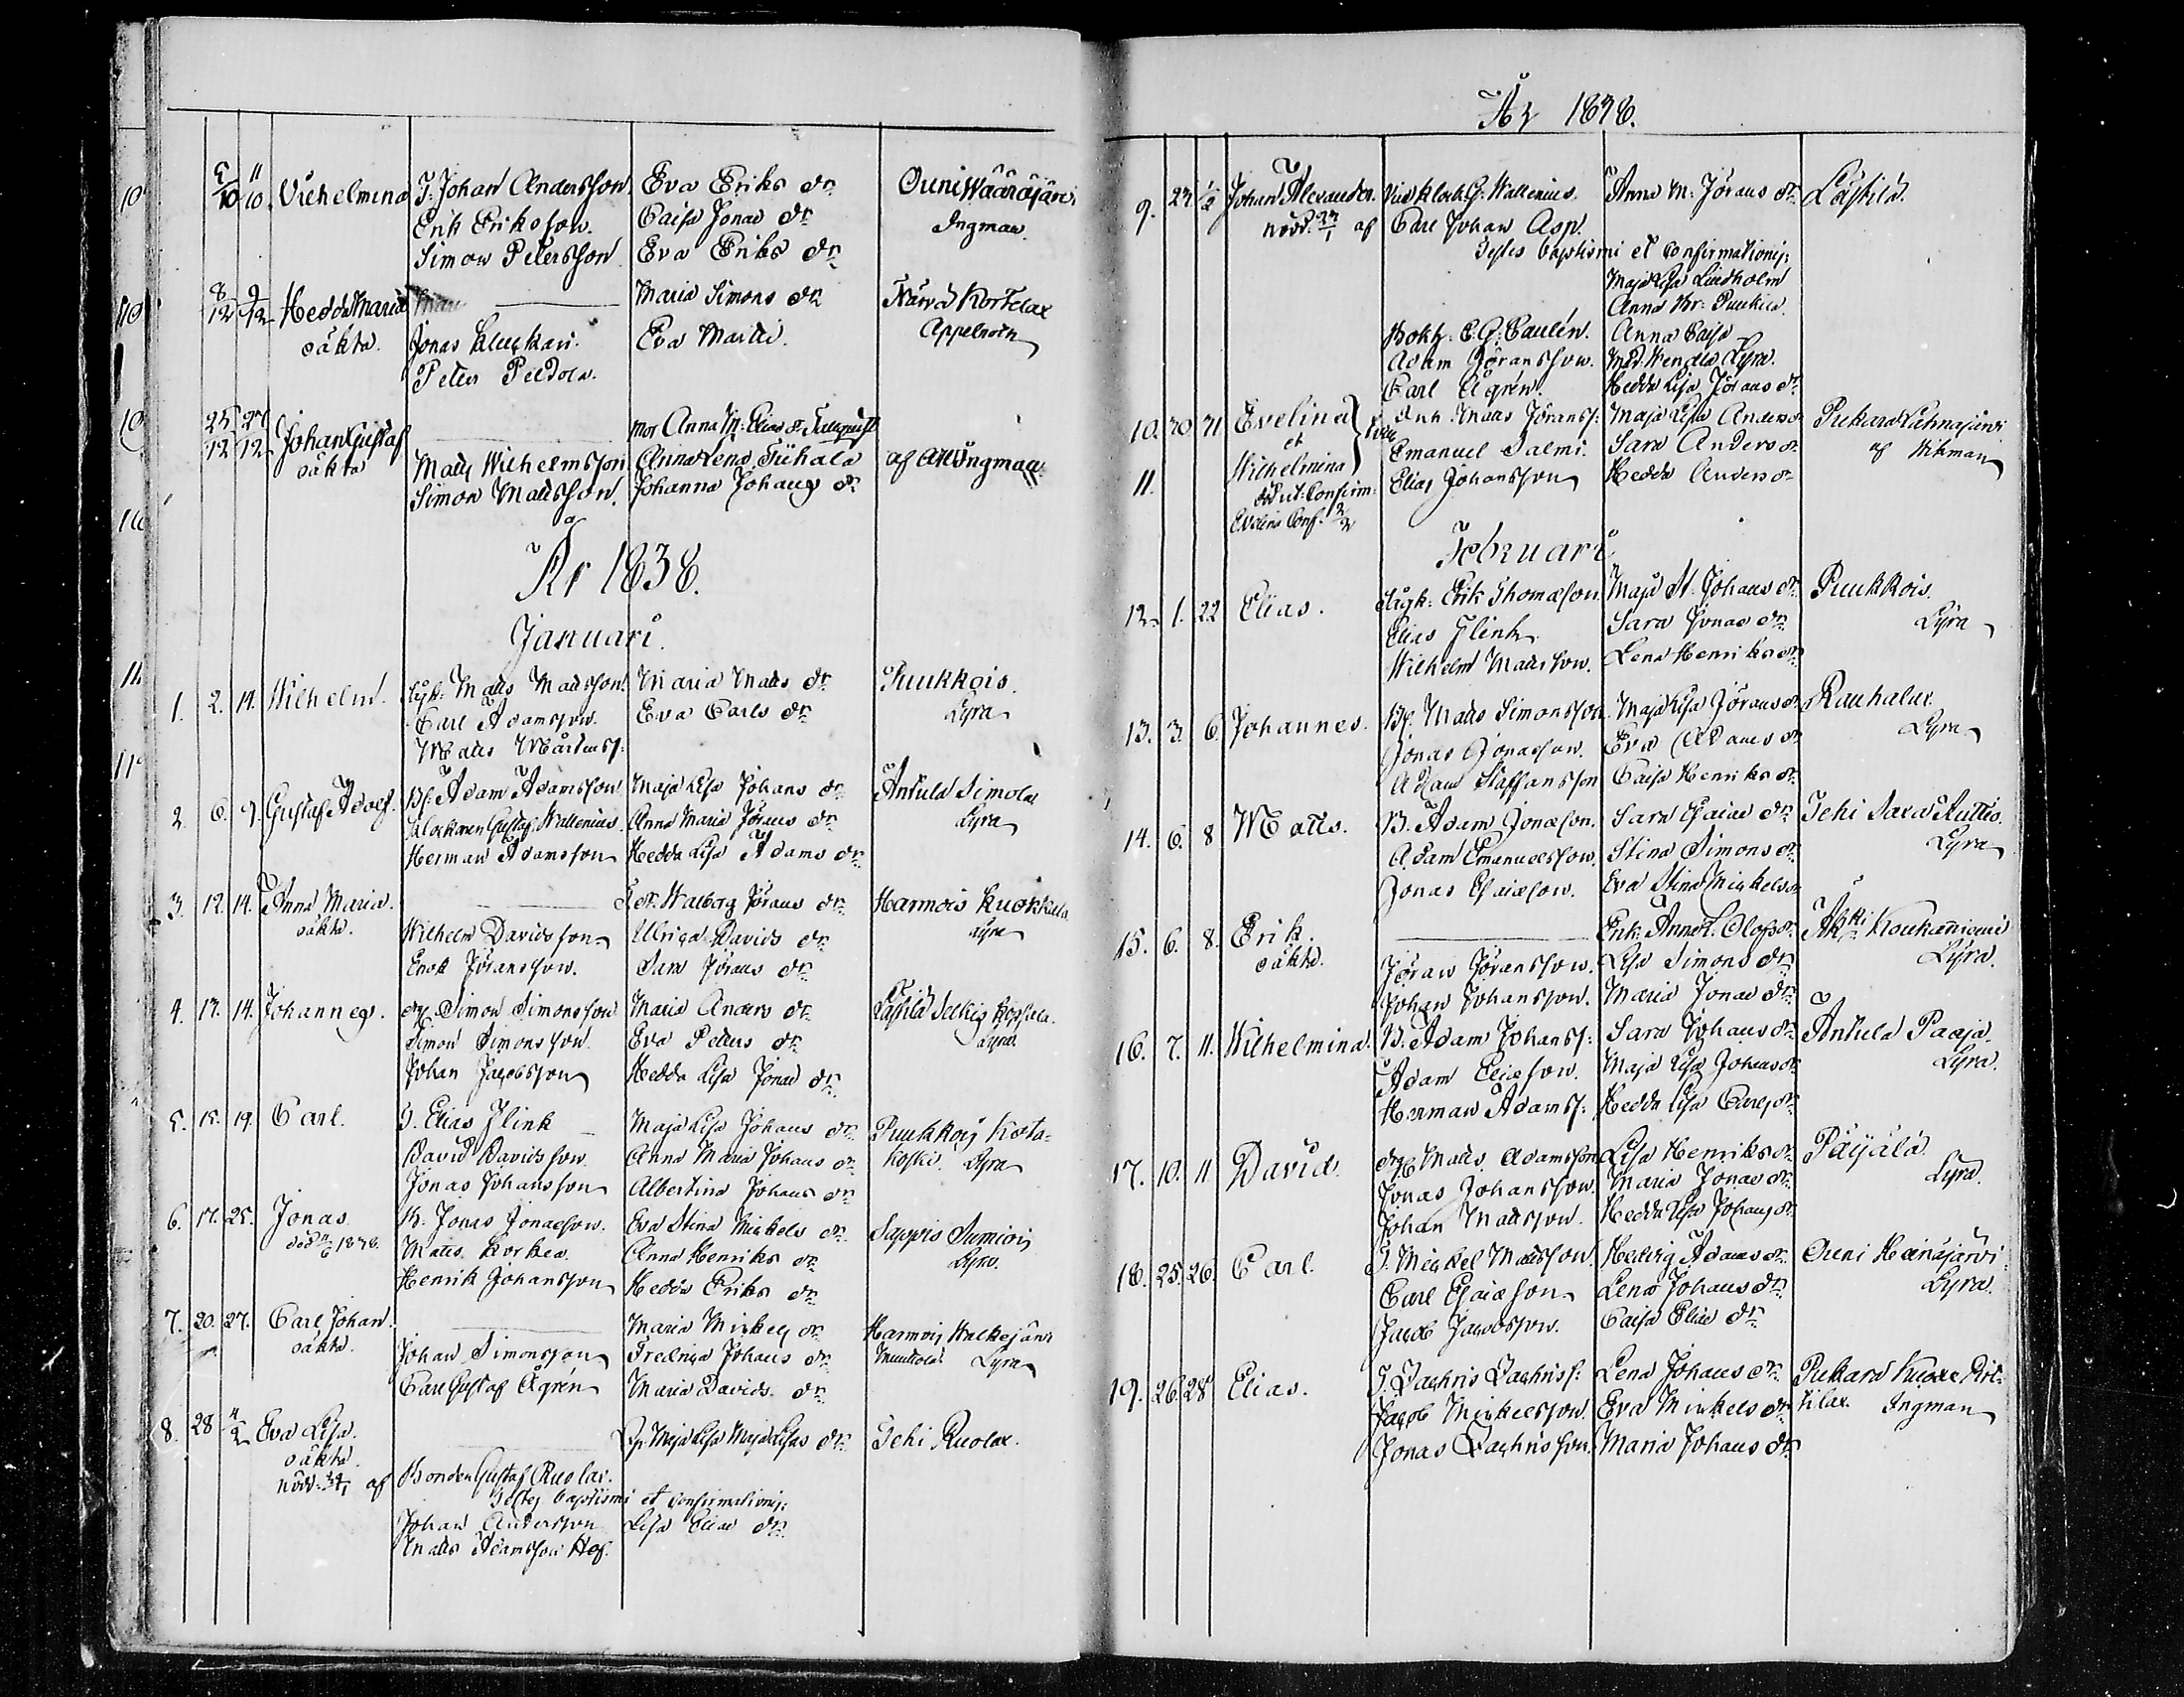 5/10 11/10 Vilhelmina T. Johan Andersson Eva Eriks dr Ouni Wäänäjärvi
Erik Eriksson. Caisa Jonas dr Ingman
Simon Petersson Eva Eriks dr
8/12 9/12 Hedda Maria Maria Simons dr Kortelax
oäkta. Jonas Eva Matts Appelroth
Peter Peldola.
25/12 27/12 Johan Gustaf mor Anna M. Elias dr
oäkta Matts Wilhelmsson Anna Lena af Ingman
Simon Mattsson. Johanna Johans dr
År 1838.
Januari.
1. 2. 14. Wilhelm. Matts Mattsson. Maria Matts dr Puukkois.
Carl Adamsson. Eva Carls dr Lyra
Matts Mårtenss:
2. 6. 7. Gustaf Adolf. B. Adam Adamsson Maja Lisa Johans dr Antula Simola
Klockaren Gustaf Wallenius. Anna Maria Jörans dr Lyra
Herman Adamsson Hedda Lisa Adams dr
3. 12. 14. Anna Maria. Walborg Jörans dr Harmois Kuokkala
oäkta. Wilhelm Davidsson Ulrica Davids dr Lyra
Enok Jöransson. Sara Jörans dr
4. 13. 14. Johannes. Simon Simonsson Maria Anders dr Lästilä
Simon Simonsson. Eva Petters dr Lyra
Johan Jacobsson Hedda Lisa Jonas dr
5. 15. 19. Carl. T. Elias Flink Maja Lisa Johans dr Puukkois Kota=
David Davidsson Anna Maria Johans dr koski. Lyra
Jonas Johansson Albertina Johans dr
6. 17. 25. Jonas. B. Jonas Jonasson. Eva Stina Mickels dr Sappis
död 1838. Matts Korkea Anna Henriks dr Lyra.
Henrik Johansson Hedda Eriks dr
7. 20. 27. Carl Johan. Maria Mickels dr Harmois
oäkta. Johan Simonsson Fredrica Johans dr Lyra
Carl Gustaf Ågrén Maria Davids dr
8. 28 4/2 Eva Lisa. Maja Lisa Maja Lisas dr Tehi Ruolax.
oäkta.
nöd. af Bonden Gustaf Ruolax.
Testes baptismi et confirmationis:
Johan Andersson Lisa Elias dr
Matts Adamsson Hof.
År 1838.
9. 23 1/2 Johan Alexander. Klock. G. Wallenius. Anna M. Jörans dr Lästilä.
nöd. 23/1 af Carl Johan Asp.
Testes baptismi et confirmationis:
Maja Lisa Lindholm
Anna Kr: Puukila
Bokh. C. G. Paulén. Anna Caisa
Adam Jöransson. Md. Wendla Lyra.
Carl Ågrén. Hedda Lisa Jörans dr
10. 30 31 Evelina Matts Jöranss: Maja Lisa Anders dr Pukara Lahnajärvi
et Emanuel Salmi. Sara Anders dr af Wikman
11. Wilhelmina Elias Johansson Hedda Anders dr
död ut. Confirm:
Evelina Conf. 2/2
Februari
12. 1. 22 Elias. Erik Thomasson. Maja St. Johans dr Puukkois.
Elias Flink Sara Jonas dr Lyra
Wilhelm Mattsson. Lena Henriks dr
13. 3. 6 Johannes. B. Matts Simonsson. Maja Lisa Jörans dr Rauhalax.
Jonas Jonasson. Eva Adams dr Lyra
Adam Staffansson Caisa Henriks dr
14. 6. 8 Matts. B. Adam Jonasson. Sara Esaias dr Tehi Saxa Ruttio.
Adam Emanuelsson. Stina Simons dr Lyra
Jonas Esaiasson. Eva Stina Mickels dr
15. 6. 8. Erik. Enk. Anna L. Olofs dr
oäkta. Jöran Jöransson. Lisa Simons dr Lyra.
Johan Johansson. Maria Jonas dr
16. 7. 11. Wilhelmina. B. Adam Johanss: Sara Johans dr Antula Paaja.
Adam Eliasson. Maja Lisa Johans dr Lyra.
Herman Adamss: Hedda Lisa Carls dr
17. 10. 11 David. Matts Adamsson Lisa Henriks dr Päijälä
Jonas Johansson. Maria Jonas dr Lyra.
Johan Mattsson. Hedda Lisa Johans dr
18. 25. 26. Carl. T. Mickel Mattsson. Hedvig Adams dr Ouni Heinäjärvi
Carl Esaiasson Lena Johans dr Lyra.
Jacob Jacobsson. Caisa Elias dr
19. 26. 28 Elias. T. Zachris Zachriss: Lena Johans dr Pukara
Jacob Mickelsson. Eva Mickels dr Ingman
Jonas Zachrisson. Maria Johans dr